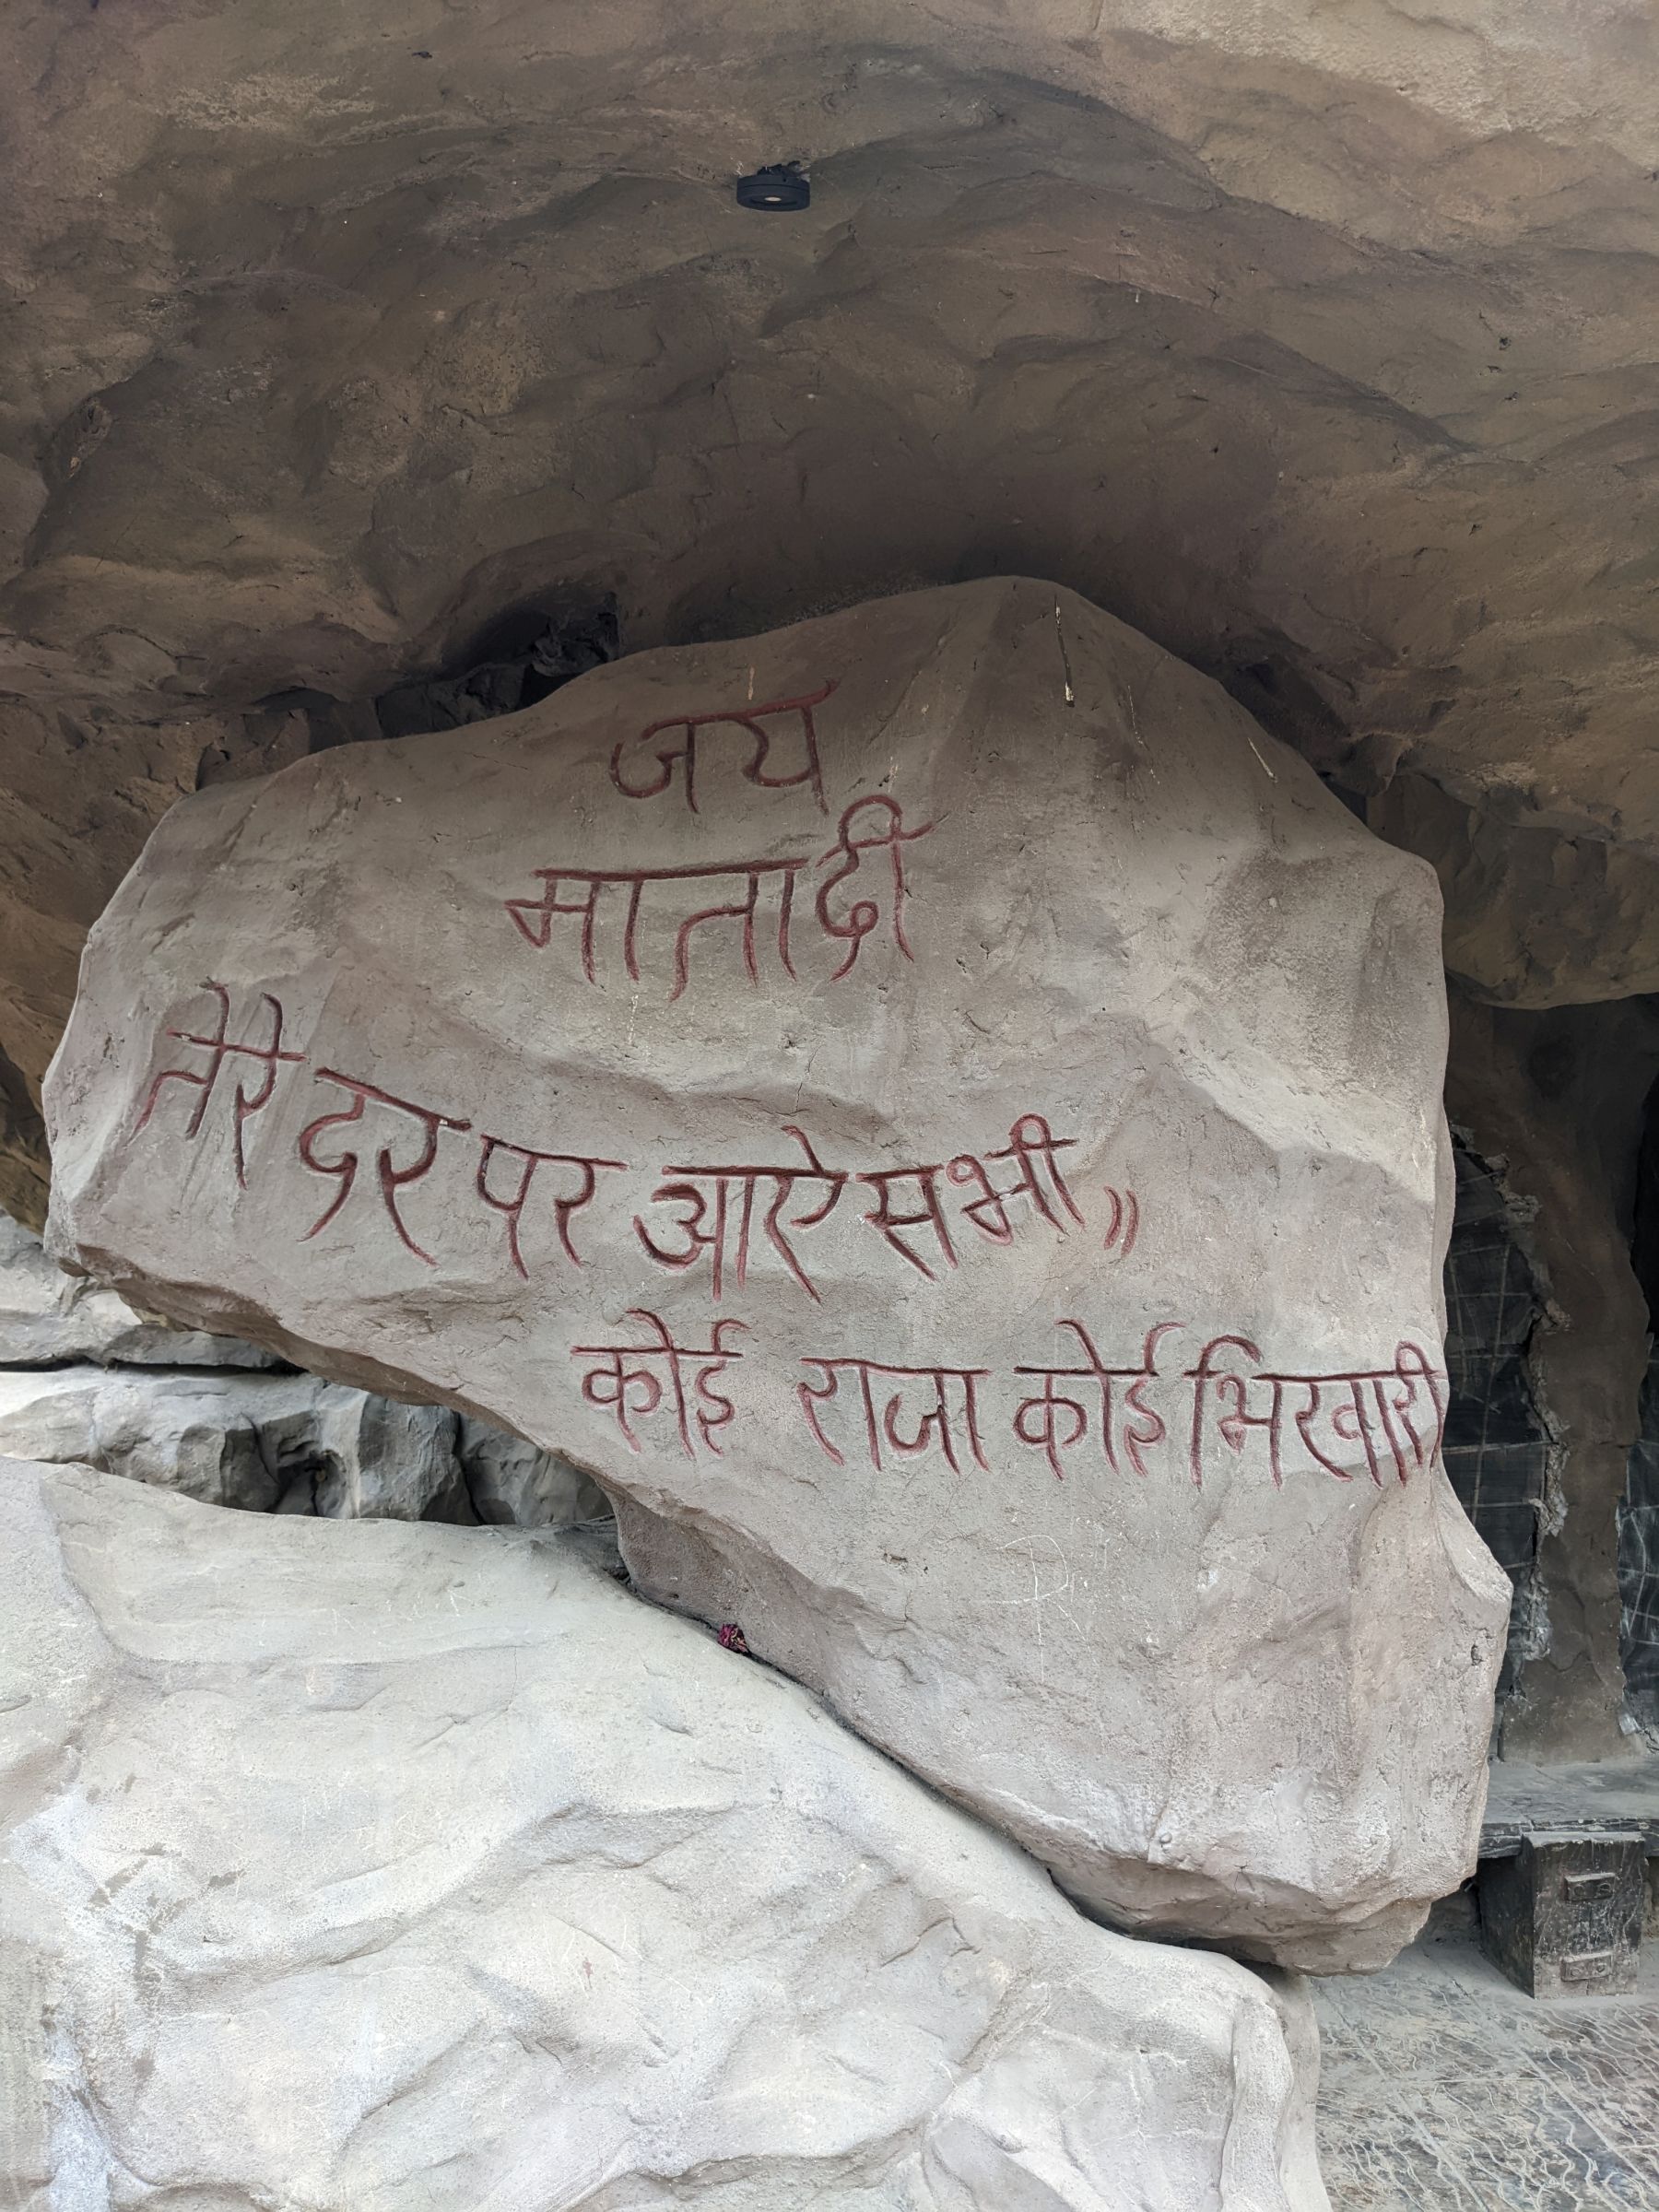 जय
माता दी
तेरे दर पर आऐ सभी ॥
कोई राजा कोई भिखारी